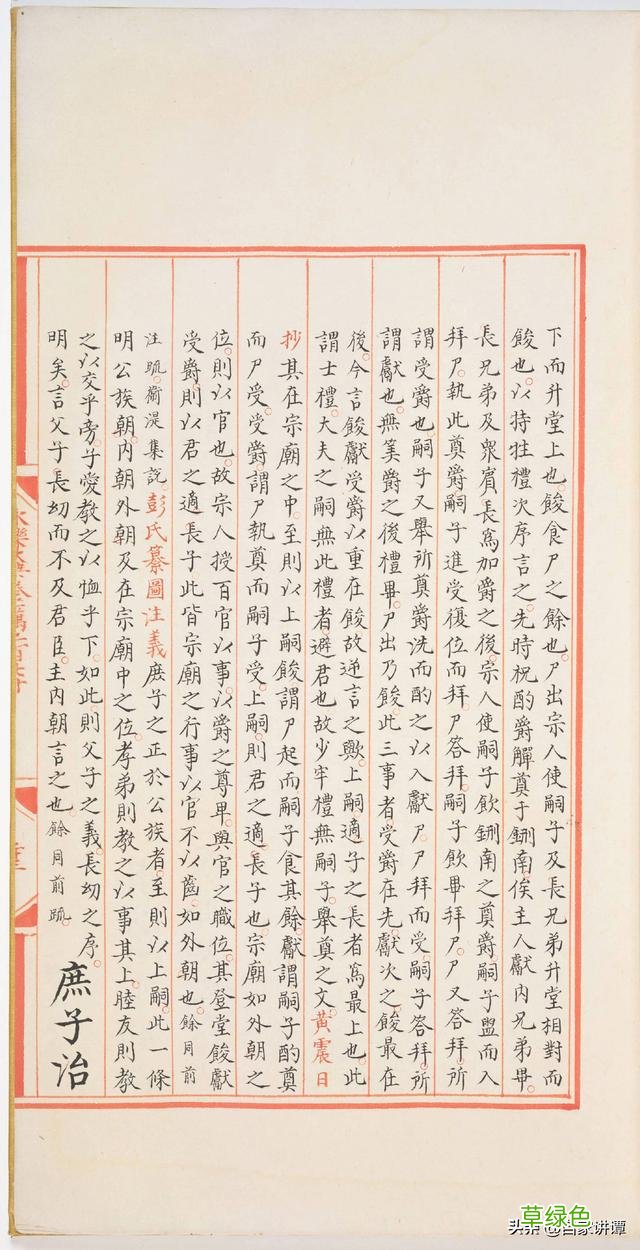 下而升堂上也。餕食尸之餘也。尸出宗人使嗣子及長兄弟升堂相對而
餕也。以特牲禮次序言之。先時祝酌爵觶奠于鉶南。俟主人獻內兄弟畢。
長兄弟及衆賓長爲加爵之後。宗人使嗣子飲鉶南之奠爵。嗣子盥而入
拜尸。執此奠爵嗣子進受復位而拜。尸答拜。嗣子飲畢拜尸。尸又答拜。所
謂受爵也。嗣子又舉所奠爵洗而酌之以入獻尸。尸拜而受。嗣子答拜。所
謂獻也。無筭爵之後禮畢。尸出乃餕。此三事者。受爵在先。獻次之。餕最在
後。今言餕獻受爵。以重在餕。故逆言之歟。上嗣適子之長者爲最上也。此
謂士禮。大夫之嗣無此禮者。避君也。故少牢禮無嗣子舉奠之文。黃震日
抄其在宗廟之中。至則以上嗣餕謂尸起而嗣子食其餘。獻謂嗣子酌奠
而尸受。受爵謂尸執奠而嗣子受。上嗣則君之適長子也。宗廟如外朝之
位。則以官也。故宗人授百官以事。以爵之尊卑。與官之職位。其登堂餕獻
受爵。則以君之適長子。此皆宗廟之行事以官不以齒。如外朝也。餘同前
注疏。衛湜集說。彭氏纂圖注義庶子之正於公族者。至則以上嗣。此一條
明公族朝。內朝外朝及在宗廟中之位。孝弟則教之以事其上。睦友則教
之以交乎旁。子愛教之以恤乎下。如此。則父子之義。長幼之序。
明矣。言父子長幼而不及君臣。主內朝言之也。餘同前疏。庶子治
草绿色
头条 @百家讲谭